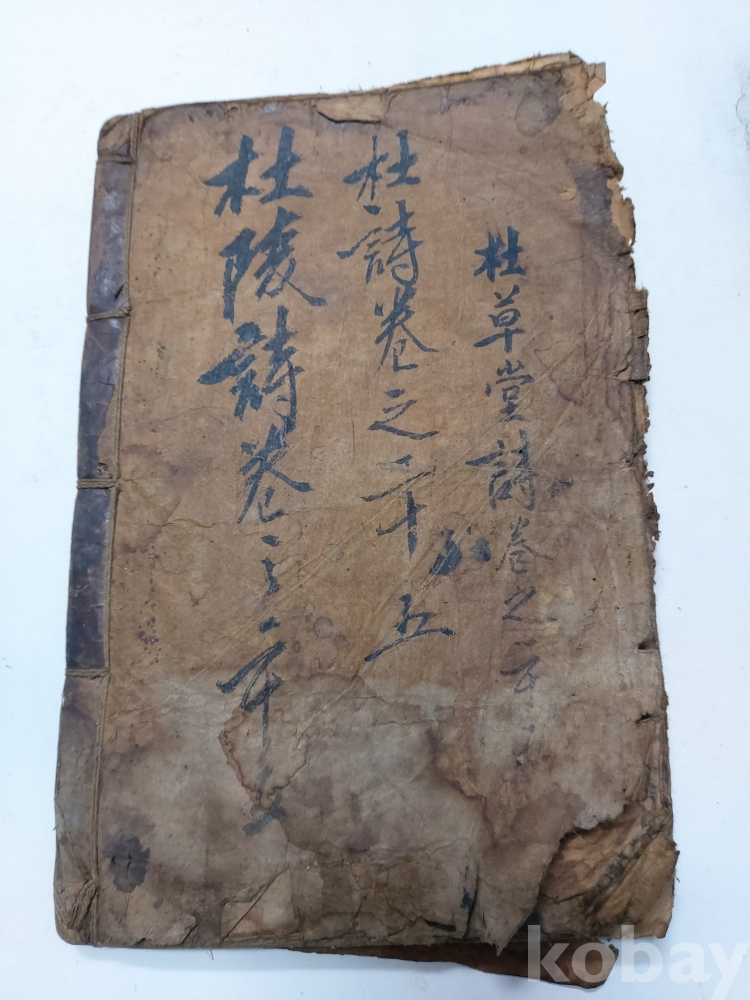 杜草堂詩卷之
杜詩卷之二十五
杜陵詩卷之二十五
kobay